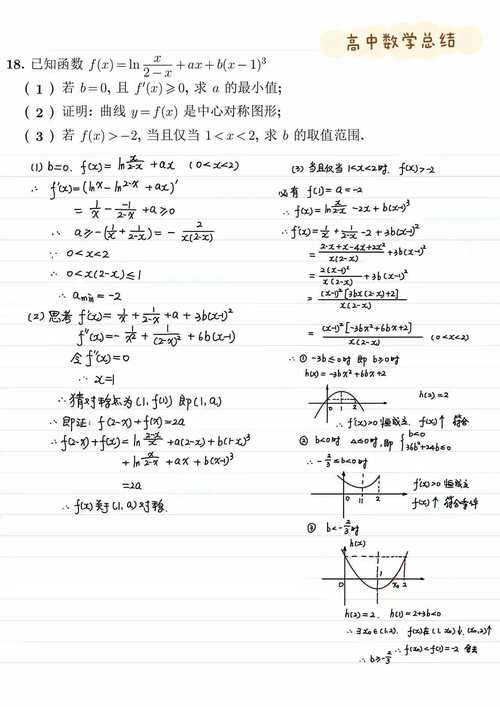 高中数学总结
18. 已知函数 f(x)=ln x/(2-x) +ax+b(x-1)³
(1) 若 b=0, 且 f′(x)⩾0, 求 a 的最小值;
(2) 证明: 曲线 y=f(x) 是中心对称图形;
(3) 若 f(x)>-2, 当且仅当 1<x<2, 求 b 的取值范围.
(1) b=0. f(x)= ln x/(2-x) +ax (0<x<2)
∴ f′(x)=(ln x - ln 2-x +ax)′
= 1/x - -1/(2-x) +a≥0
∴ a≥-(1/x + 1/(2-x)) = - 2/(x(2-x))
∵ 0<x<2
∴ 0<x(2-x)≤1
∴ amin=-2
(2) 思考 f′(x)= 1/x + 1/(2-x) +a+3b(x-1)²
f″(x)=- 1/x² + 1/(2-x)² +6b(x-1)
令 f″(x)=0
∴ x=1
∴ 猜对称点为(1, f(1)) 即(1, a)
∴ 即证: f(2-x)+f(x)=2a
∴ f(2-x)+f(x)= ln (2-x)/x +a(2-x)+b(1-x)³
+ ln x/(2-x) +ax+b(x-1)³
=2a
∴ f(x)关于(1, a)对称.
(3) 当且仅当 1<x<2时. f(x)>-2
必有 f(1)=a=-2
∴ f(x)= ln x/(2-x) -2x+b(x-1)³
∴ f′(x)= 1/x + 1/(2-x) -2+3b(x-1)²
= (2-x+x-4x+2x²)/(x(2-x)) +3b(x-1)²
= 2(x-1)²/(x(2-x)) +3b(x-1)²
= (x-1)²[3bx(2-x)+2]/(x(2-x))
= (x-1)²[-3bx²+6bx+2]/(x(2-x)) (0<x<2)
∴ ① -3b≤0时 即 b≥0时
h(x)=-3bx²+6bx+2
h(2)=2
0 1 2
∴ f′(x)>0 恒成立. f(x)↑ 符合
② b<0时 △≤0时, 即 { b<0
36b²+24b≤0
∴ - 2/3 ≤b<0时
f′(x)>0 恒成立
0 1 2
f(x)↑ 符合条件
③ b<- 2/3 时
h(x)
1
0 x₀ 2
h(2)=2. h(1)=2+3b<0
∴ ∃x₀∈(1,2). f(x)在(1, x₀)↓. (x₀,2)↑
∴ f(x₀)<f(1)=-2 舍去
∴ b≥- 2/3